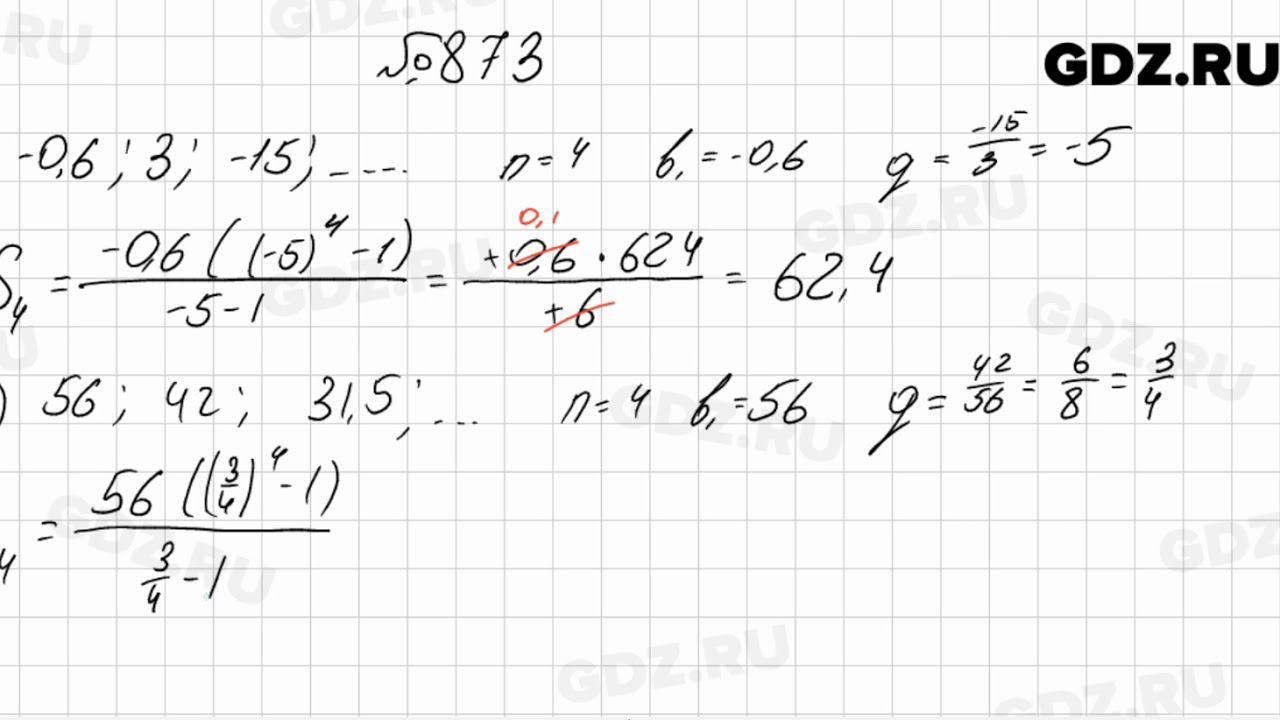 №873
GDZ.RU
-0,6; 3; -15; ..... n=4 b₁ = -0,6 q = -15/3 = -5
S₄ = -0,6((-5)⁴-1)/-5-1 = +0,6·624/+6 = 62,4
0,1
) 56; 42; 31,5; ... n=4 b₁=56 q = 42/56 = 6/8 = 3/4
4 = 56((3/4)⁴-1)/3/4-1